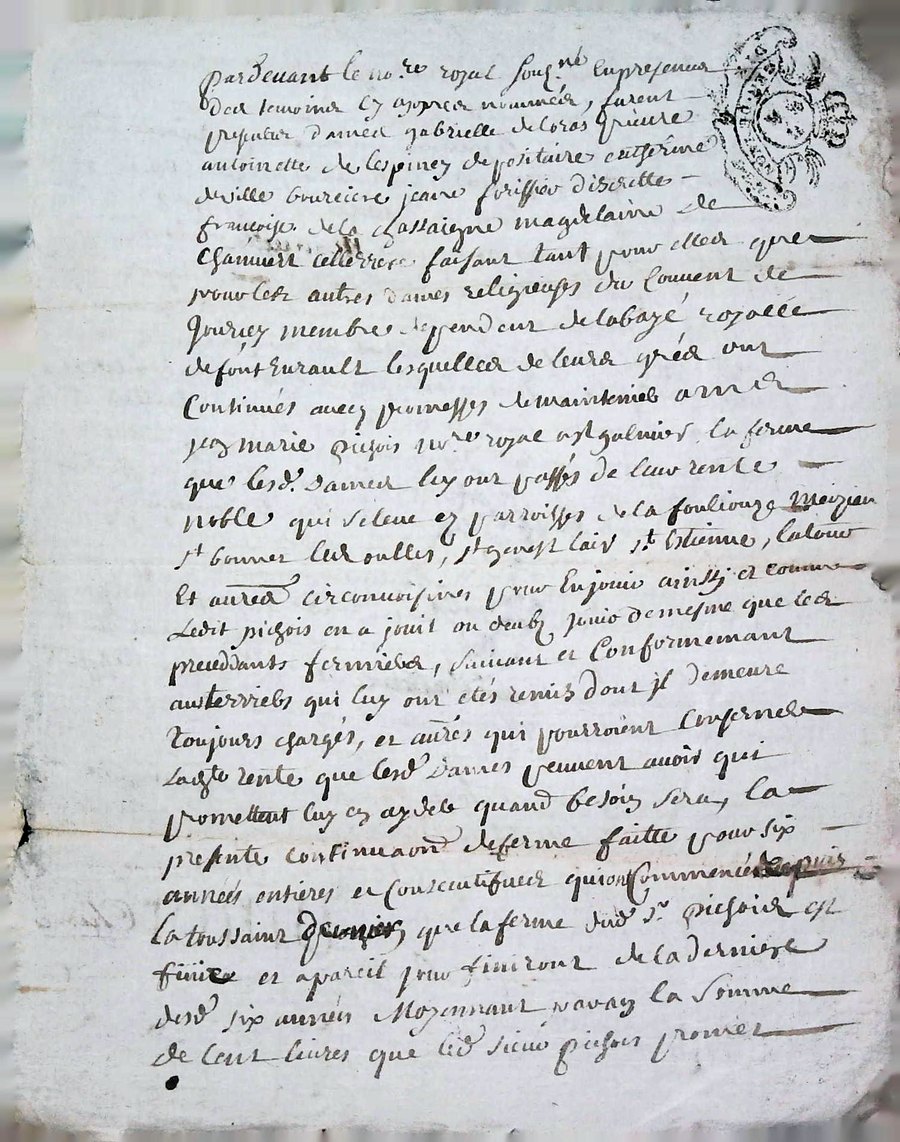 pardevant le no.re royal soug.né en presence
des temoins cy apprez nommés, furent
presentes dames gabrielle deloras prieure
antoinette de lespiney depositaire catherine
deville boursiere jeane forissier discrette
françoise de la chassaigne magdelaine de
Chanviert cellerere faisant tant pour elles que
pour les autres dames religieuses du Couvent de
Jourcey membre dependent de labayé royalle
de fontEurault lesquelles de leurs grés ont
Continués avec promesses de maintenir a me
jean marie pichois no.re royal a st galmier la ferme
que lesd. dames luy ont passés de leur rente
noble qui se leve en parroisses de la fouliouze
st bonnet les oulles, st genest lair st Estienne, latour
Et autres circonvoisines pour En jouir ainssy et comme
Ledit pichois en a jouit ou deub jouir de mesme que les
precedants fermiers, suivant et Conformemant
au terriers qui luy ont etés remis dont jl demeure
Toujours chargés, et autres qui pourroient Conserner
Ladte rente que lesd. dames peuvent avoir qui
promettent luy en ayder quand besoin sera, la
presente continuaon de ferme faitte pour six
années entieres et Consecutifves qui ont Commencé depuis
la toussaint dernier que la ferme dud. sr. pichois est
finie et a pareil jour finiront de la derniere
desd. six années Moyennant la Somme
de Cent livres que led. sieur pichois promet